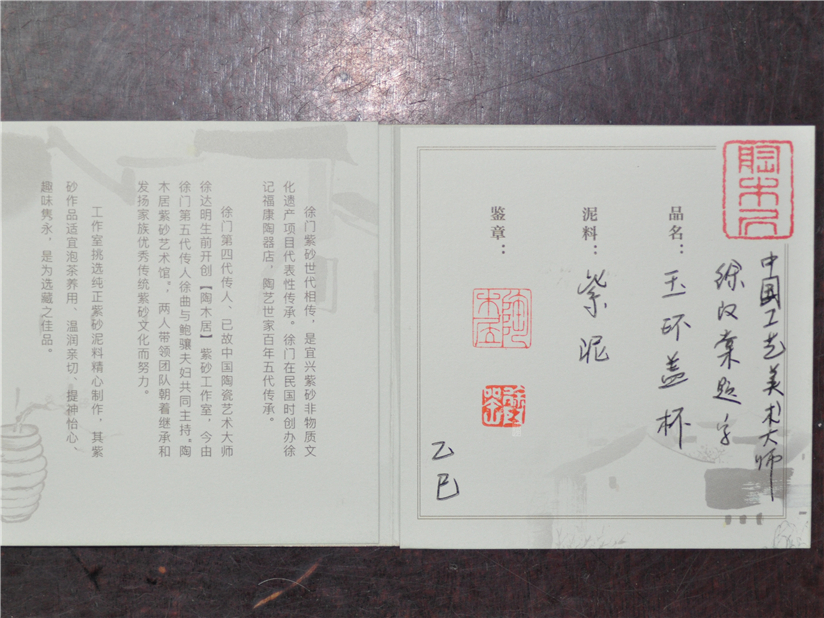 中国工艺美术大师
徐汉棠题字
品名：玉环盖杯
泥料：紫泥
鉴章：
陶木居
乙巳
徐门紫砂世代相传，是宜兴紫砂非物质文
化遗产项目代表性传承。徐门在民国时创办徐
记福康陶器店，陶艺世家百年五代传承。
徐门第四代传人、已故中国陶瓷艺术大师
徐达明生前开创【陶木居】紫砂工作室，今由
徐门第五代传人徐曲与鲍骧夫妇共同主持。陶
木居紫砂艺术馆。，两人带领团队朝着继承和
发扬家族优秀传统紫砂文化而努力。
工作室挑选纯正紫砂泥料精心制作，其紫
砂作品适宜泡茶养用、温润亲切、提神怡心、
趣味隽永，是为选藏之佳品。